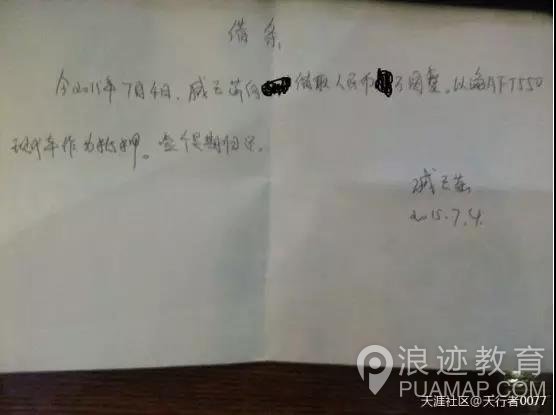 借条
今2015年7月4日,戚云茹向 借取人民币 万圆整。以 T550
现代车作为抵押。 期归还。
戚云茹
2015.7.4.
浪迹教育
PUAMAP.COM
天涯社区@天行者0077